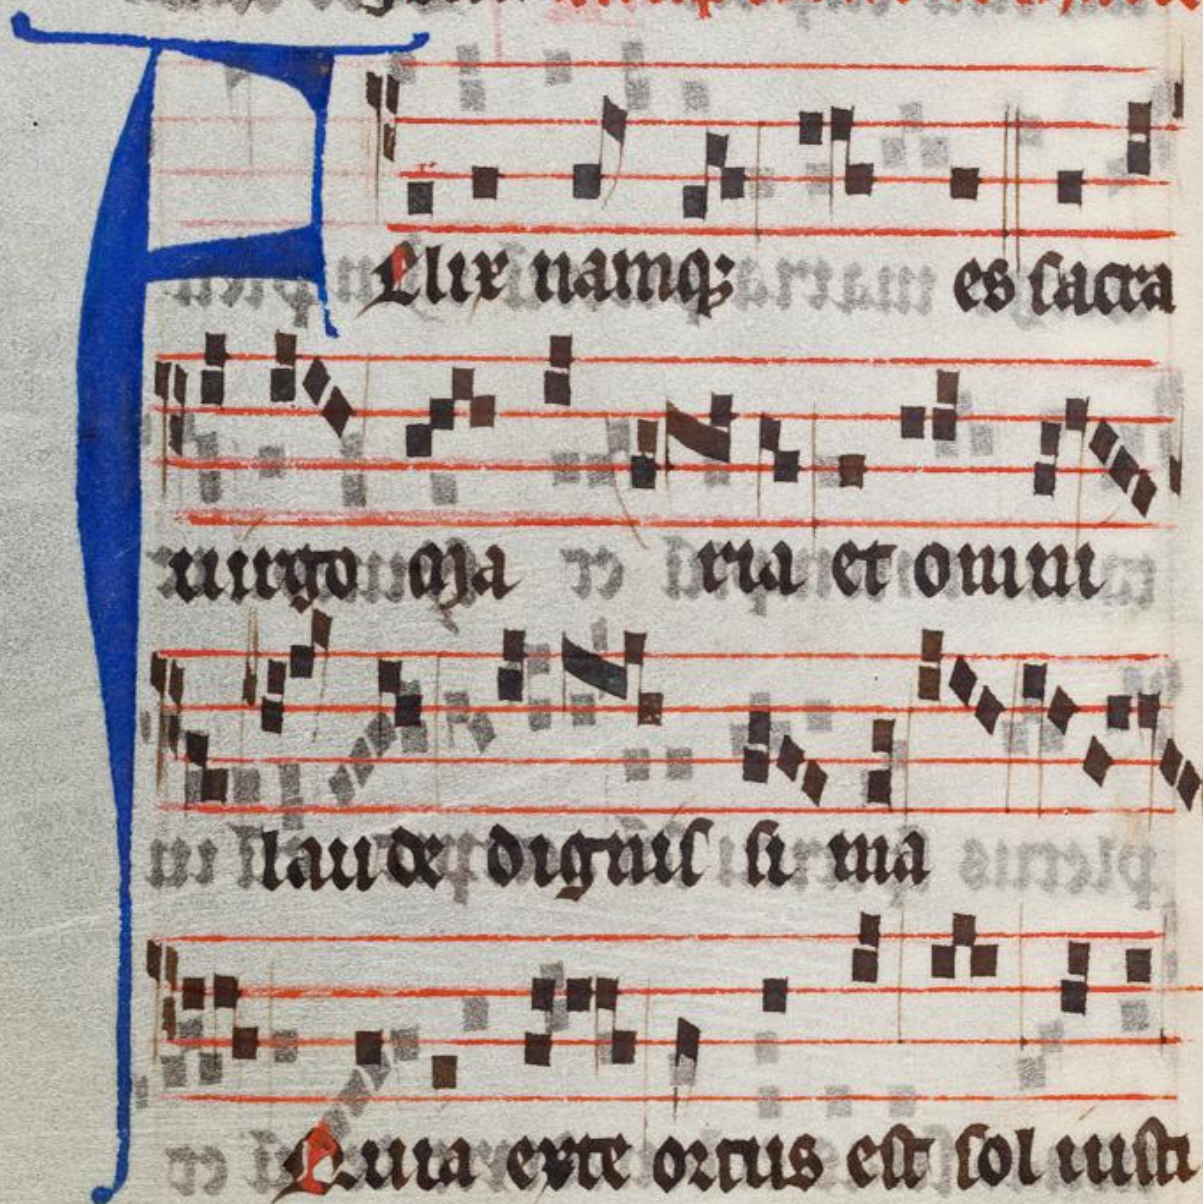 Felix namq; es sacra
uirgo Ma ria et omni
laude dignis si ma
Quia exte ortus est sol iusti